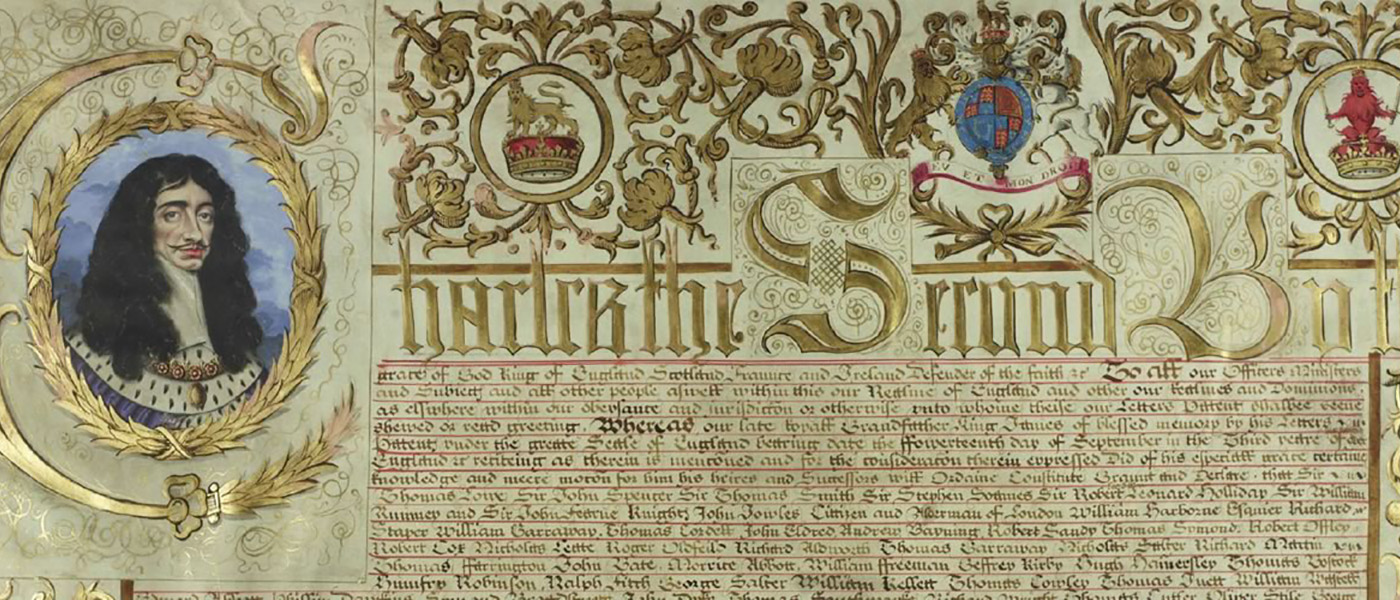 ET MON DROIT
Charles the Second By t
grace of God King of England Scotland France and Ireland Defender of the faith &c To all our Officers Ministers
and Subiects and all other people aswell within this our Realme of England and other our Realmes and Dominions
as elswhere within our obeysance and iurisdiccon or otherwise vnto whome theise our Letters Patent shalbee seen
shewed or read greeting. Whereas our late royall Grandfather King Iames of blessed memory by his Letters
Patent vnder the greate Seale of England bearing date the ffowerteenth day of September in the Third yeare of
England &c reciteing as therein is menconed and for the consideracon therein expressed Did of his especiall grace certaine
knowledge and meere mocon for him his heires and Successors will Ordaine Constitute Graunt and Declare that Sir
Thomas Lowe Sir John Spencer Sir Thomas Smith Sir Stephen Soames Sir Robert Leonard Holliday Sir William
Rumney and Sir John Fearne Knights John Jowles Citizen and Alderman of London William Harborne Esquier Richard
Staper William Garraway. Thomas Cordell John Eldred Andrew Bayning Robert Sandy Thomas Symond. Robert Offley
Robert Cox Nicholas Leate Roger Oldfeild Richard Aldworth Thomas Garraway Nicholas Salter Richard Martin
Thomas Farrington John Bate. Morrice Abbott, William ffreeman Geffrey Kirby Hugh Hamersley Thomas
Humfry Robinson Ralph Fitch George Salter William Kellett Thomas Cowley Thomas Juett William